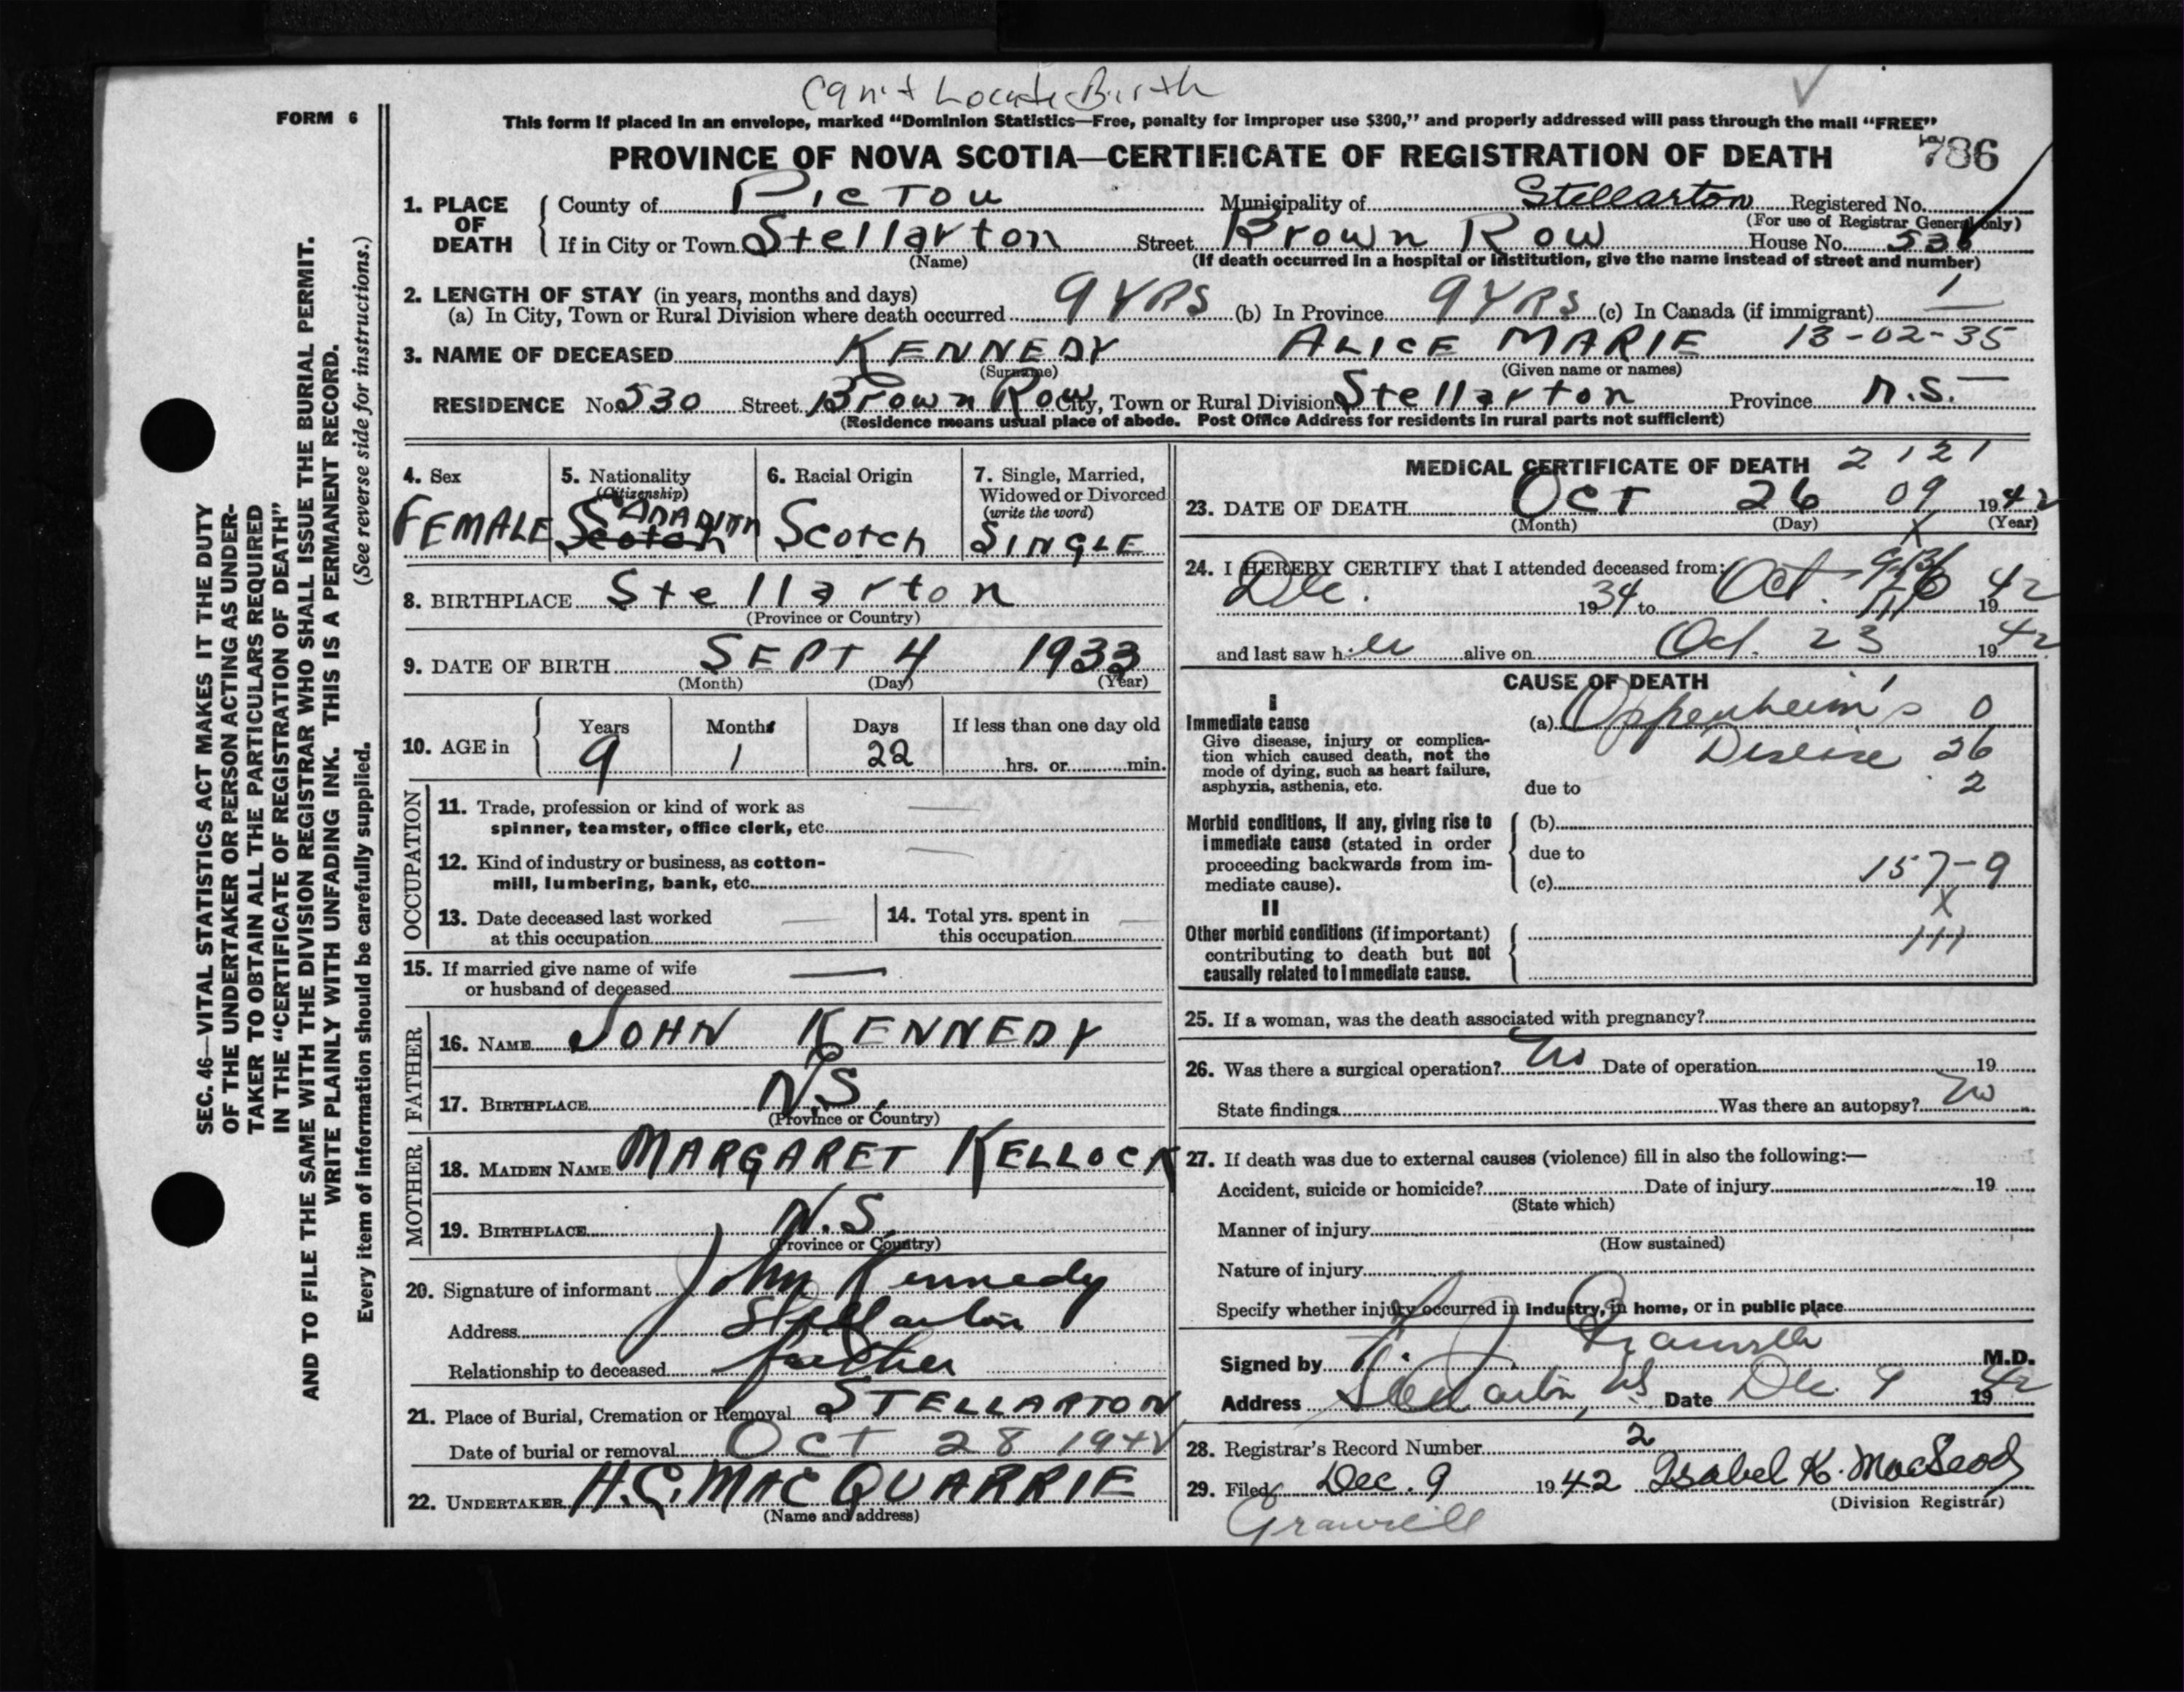 Can't Locate Birth
FORM 6
This form if placed in an envelope, marked "Dominion Statistics—Free, penalty for improper use $300," and properly addressed will pass through the mail "FREE"
PROVINCE OF NOVA SCOTIA—CERTIFICATE OF REGISTRATION OF DEATH 786
1. PLACE OF DEATH County of Pictou Municipality of Stellarton Registered No.
(For use of Registrar General only)
If in City or Town Stellarton Street Brown Row House No. 530
(Name) (If death occurred in a hospital or institution, give the name instead of street and number)
2. LENGTH OF STAY (in years, months and days)
(a) In City, Town or Rural Division where death occurred 9 YRS (b) In Province 9 YRS (c) In Canada (if immigrant) 1
3. NAME OF DECEASED KENNEDY ALICE MARIE 13-02-35
(Surname) (Given name or names)
RESIDENCE No. 530 Street Brown Row City, Town or Rural Division Stellarton Province N.S.
(Residence means usual place of abode. Post Office Address for residents in rural parts not sufficient)
4. Sex FEMALE
5. Nationality (Citizenship) Scotch CANADIAN
6. Racial Origin Scotch
7. Single, Married, Widowed or Divorced (write the word) SINGLE
8. BIRTHPLACE Stellarton
(Province or Country)
9. DATE OF BIRTH SEPT 4 1933
(Month) (Day) (Year)
10. AGE in Years 9 Months 1 Days 22 If less than one day old hrs. or min.
OCCUPATION
11. Trade, profession or kind of work as spinner, teamster, office clerk, etc. —
12. Kind of industry or business, as cotton-mill, lumbering, bank, etc. —
13. Date deceased last worked at this occupation —
14. Total yrs. spent in this occupation —
15. If married give name of wife or husband of deceased —
FATHER
16. NAME JOHN KENNEDY
17. BIRTHPLACE N.S.
(Province or Country)
MOTHER
18. MAIDEN NAME MARGARET KELLOCK
19. BIRTHPLACE N.S.
(Province or Country)
20. Signature of informant John Kennedy
Address Stellarton
Relationship to deceased father
21. Place of Burial, Cremation or Removal STELLARTON
Date of burial or removal OCT 28 1942
22. UNDERTAKER H.C. MACQUARRIE
(Name and address)
MEDICAL CERTIFICATE OF DEATH 2121
23. DATE OF DEATH OCT 26 09 1942
(Month) (Day) (Year)
X
24. I HEREBY CERTIFY that I attended deceased from:
Dec. 1934 to Oct. 26 1942
111
and last saw her alive on Oct. 23 1942
CAUSE OF DEATH
I
Immediate cause
Give disease, injury or complication which caused death, not the mode of dying, such as heart failure, asphyxia, asthenia, etc.
(a) Oppenheim's 0
Disease 26
due to 2
Morbid conditions, if any, giving rise to immediate cause (stated in order proceeding backwards from immediate cause).
(b)
due to
(c) 157-9
X
II
Other morbid conditions (if important) contributing to death but not causally related to immediate cause.
111
25. If a woman, was the death associated with pregnancy?
26. Was there a surgical operation? No Date of operation 19
State findings Was there an autopsy? No
27. If death was due to external causes (violence) fill in also the following:—
Accident, suicide or homicide? Date of injury 19
(State which)
Manner of injury
(How sustained)
Nature of injury
Specify whether injury occurred in industry, in home, or in public place
Signed by M.D.
Address Stellarton, NS Date Dec. 9 1942
28. Registrar's Record Number 2
29. Filed Dec. 9 1942 Isabel K. MacLeod
(Division Registrar)
SEC. 46—VITAL STATISTICS ACT MAKES IT THE DUTY
OF THE UNDERTAKER OR PERSON ACTING AS UNDER-
TAKER TO OBTAIN ALL THE PARTICULARS REQUIRED
IN THE "CERTIFICATE OF REGISTRATION OF DEATH"
AND TO FILE THE SAME WITH THE DIVISION REGISTRAR WHO SHALL ISSUE THE BURIAL PERMIT.
WRITE PLAINLY WITH UNFADING INK. THIS IS A PERMANENT RECORD.
Every item of information should be carefully supplied. (See reverse side for instructions.)